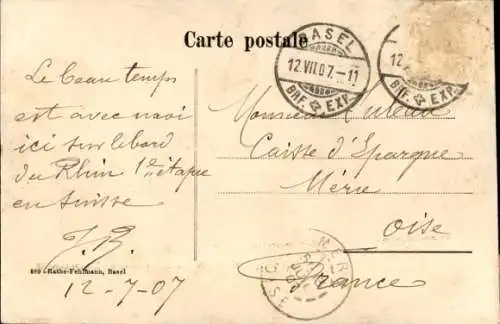 Carte postale
BASEL
12.VII.07.-11
BRF. EXP.
12.
BRF. EXP.
Le beau temps
est avec moi
ici sur le bord
du Rhin 1ère étape
en Suisse
J.B.
12-7-07
Monsieur
Caisse d'Epargne
Méru
Oise
France
MERU
OISE
889 Rathe-Fehlmann, Basel